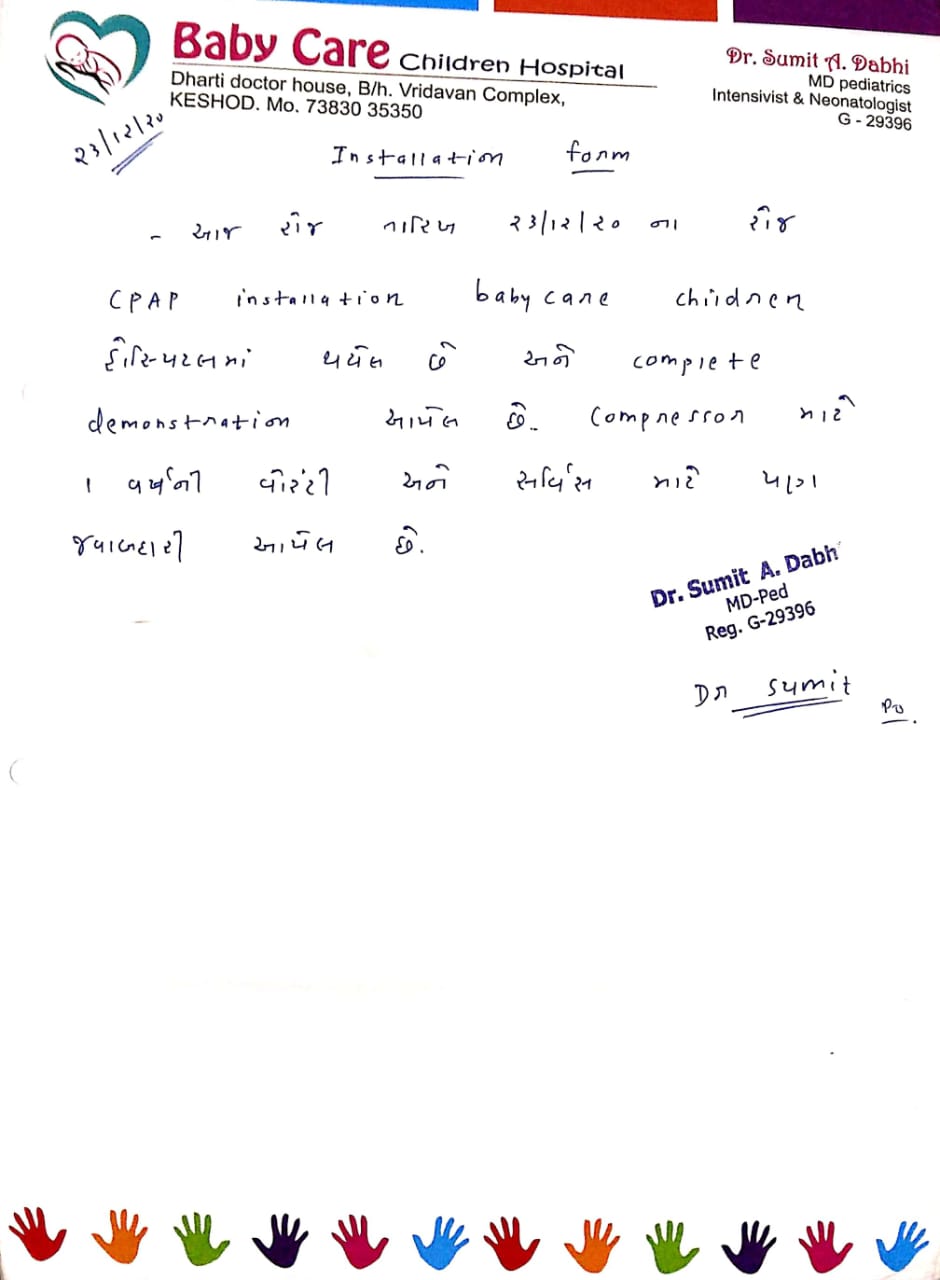 Baby Care Children Hospital
Dharti doctor house, B/h. Vridavan Complex,
KESHOD. Mo. 73830 35350
Dr. Sumit A. Dabhi
MD pediatrics
Intensivist & Neonatologist
G - 29396
૨૩/૧૨/૨૦
Installation form
- આજ રોજ તારિખ ૨૩/૧૨/૨૦ ના રોજ
CPAP installation baby care children
હોસ્પિટલમાં થયેલ છે અને complete
demonstration આપેલ છે. Compressor માટે
૧ વર્ષની વોરંટી અને સર્વિસ માટે પણ
જવાબદારી આપેલ છે.
Dr. Sumit A. Dabh
MD-Ped
Reg. G-29396
Dr Sumit